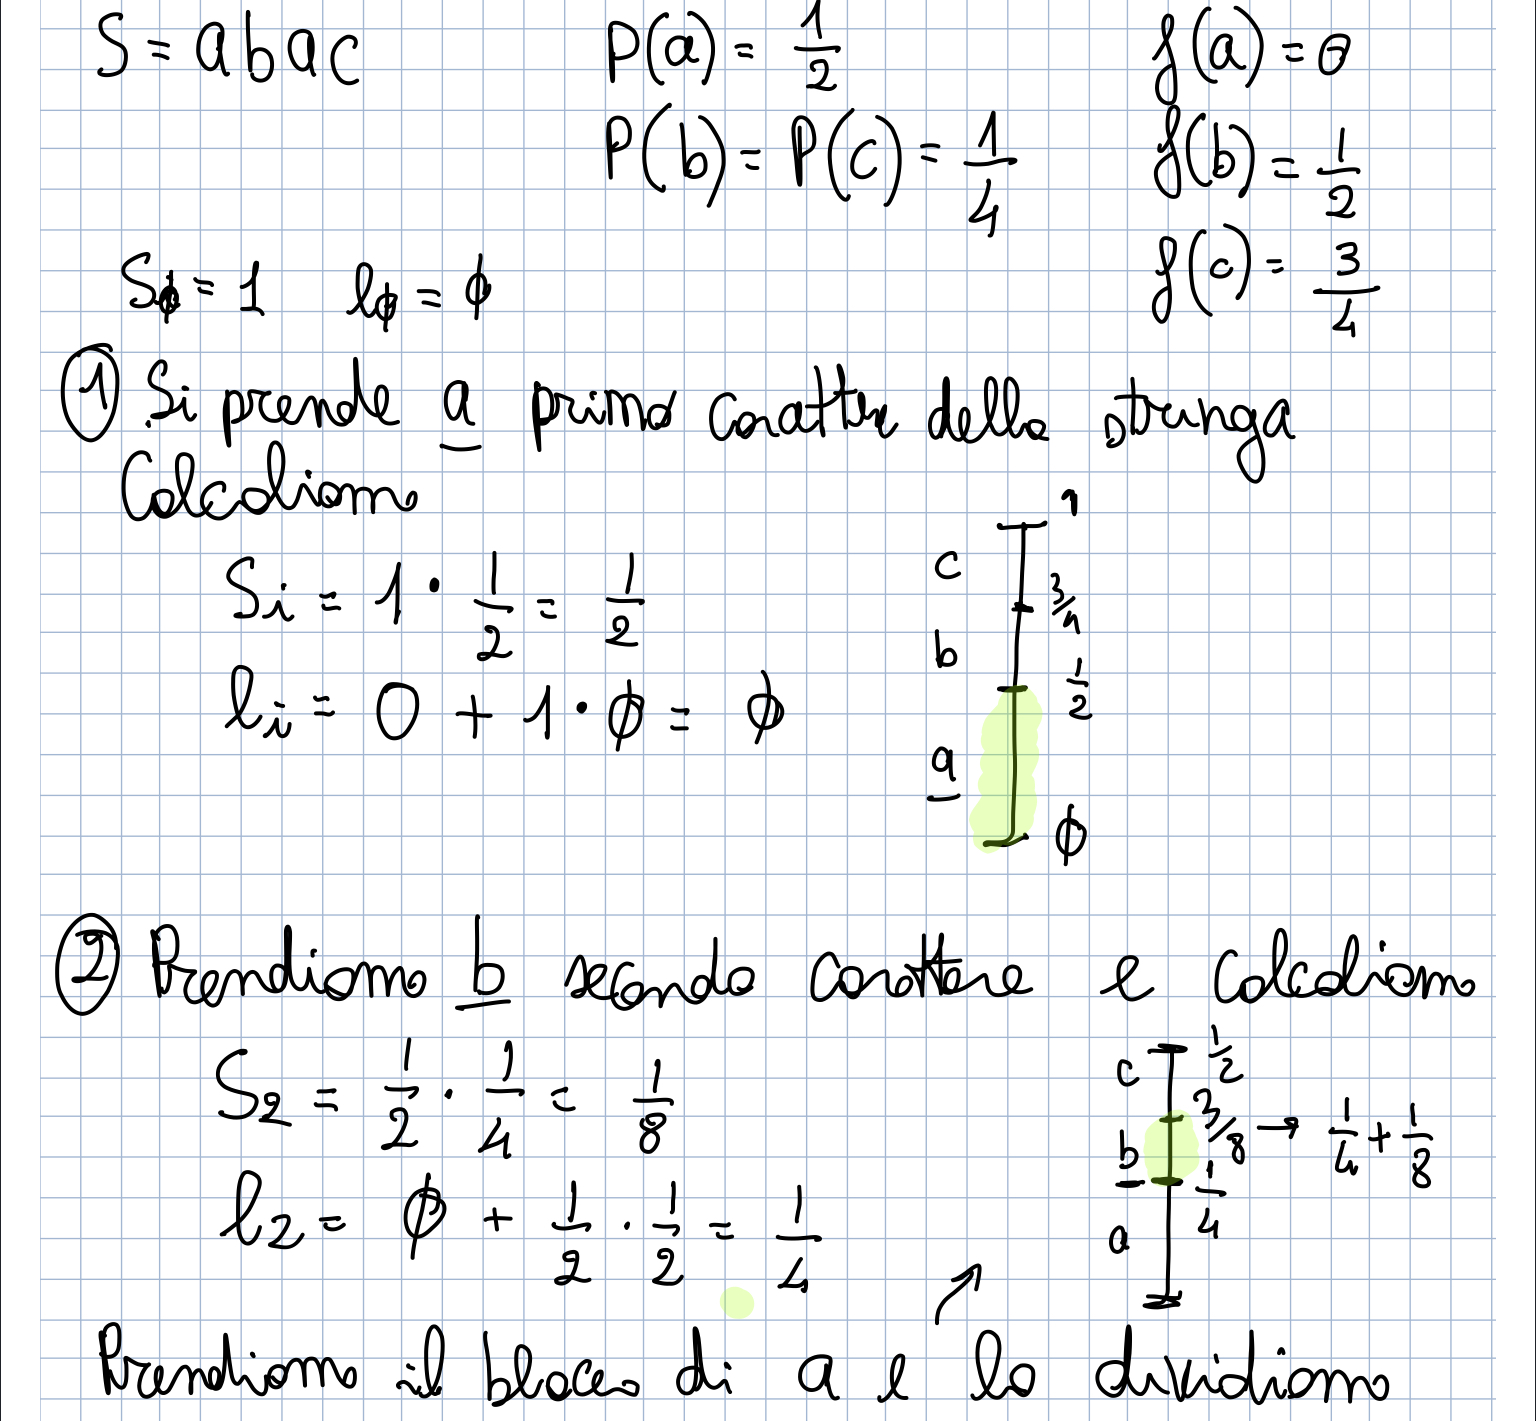 S = abac P(a) = 1/2 f(a) = 0
P(b) = P(c) = 1/4 f(b) = 1/2
f(c) = 3/4
S0 = 1 l0 = 0
① Si prende a primo carattere della stringa
Calcoliamo
Si = 1 · 1/2 = 1/2
li = 0 + 1 · 0 = 0
1
c
3/4
b
1/2
a
0
② Prendiamo b secondo carattere e calcoliamo
S2 = 1/2 · 1/4 = 1/8
l2 = 0 + 1/2 · 1/2 = 1/4
c 1/2
3/8 → 1/4 + 1/8
b
1/4
a
Prendiamo il blocco di a e lo dividiamo